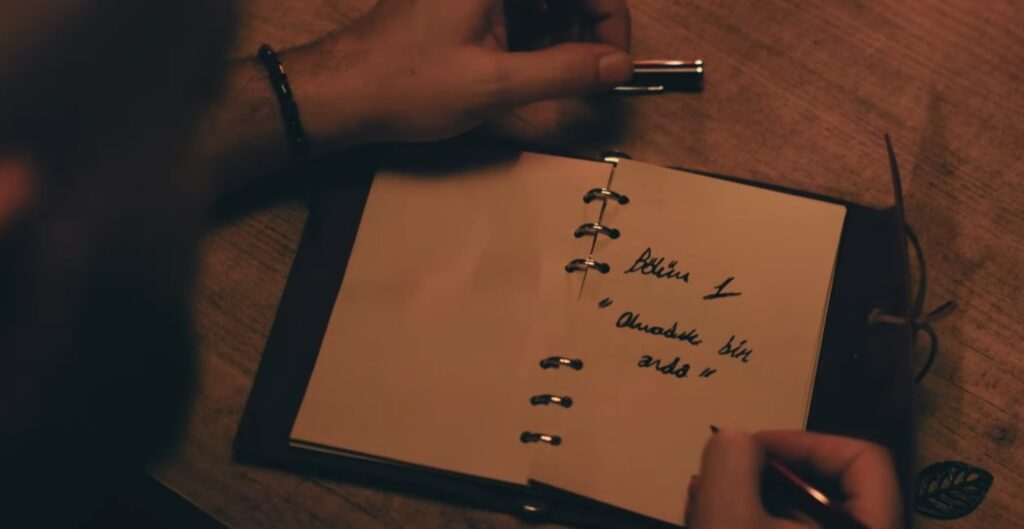 Bölüm 1
"Olmadık bir
arda"